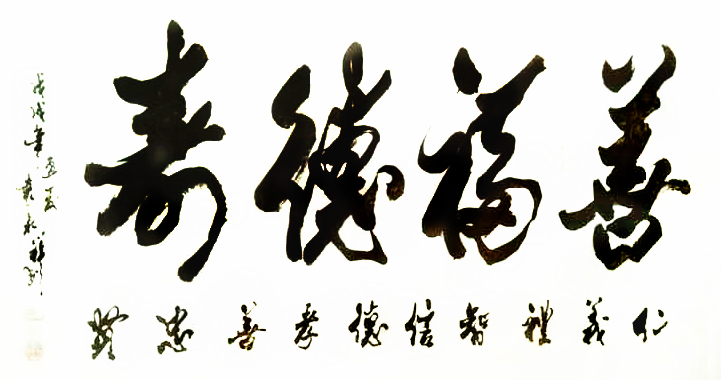 善福德寿
仁義禮智信德孝善忠
戊戌年